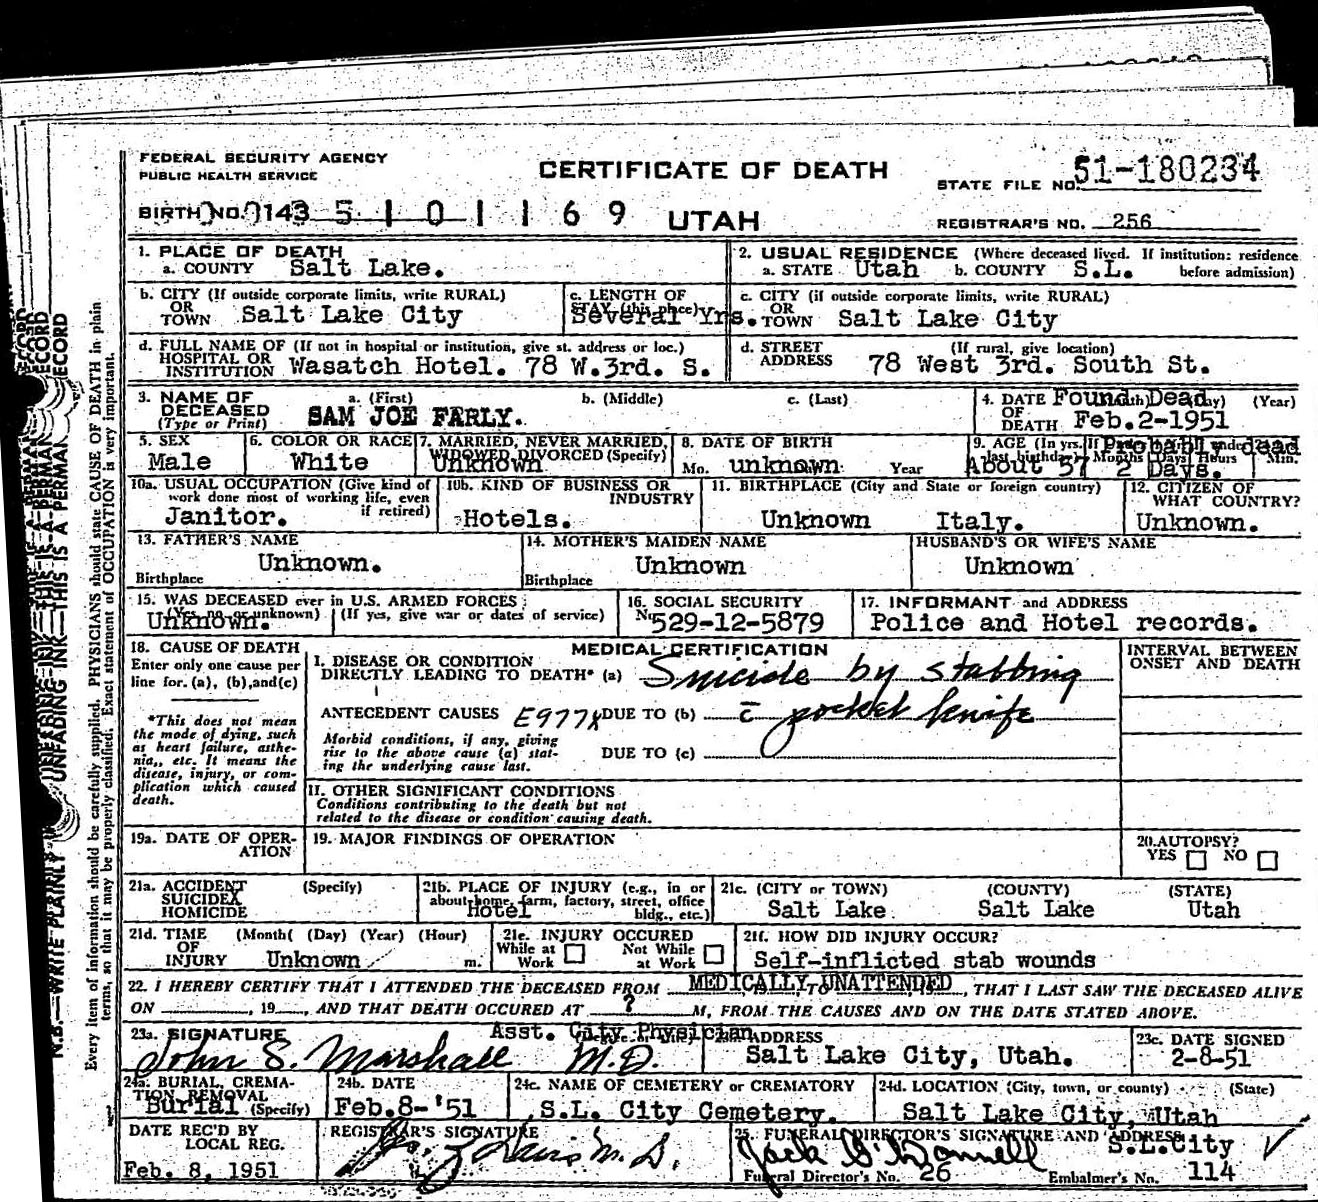 FEDERAL SECURITY AGENCY
PUBLIC HEALTH SERVICE
CERTIFICATE OF DEATH
STATE FILE NO. 51-180234
BIRTH NO. 143 5 1 0 1 1 6 9 UTAH
REGISTRAR'S NO. 256
1. PLACE OF DEATH
a. COUNTY Salt Lake.
2. USUAL RESIDENCE (Where deceased lived. If institution: residence before admission)
a. STATE Utah b. COUNTY S.L.
b. CITY (If outside corporate limits, write RURAL)
OR TOWN Salt Lake City
c. LENGTH OF STAY (this place) Several Yrs.
c. CITY (if outside corporate limits, write RURAL)
OR TOWN Salt Lake City
d. FULL NAME OF (If not in hospital or institution, give st. address or loc.)
HOSPITAL OR INSTITUTION Wasatch Hotel. 78 W.3rd. S.
d. STREET ADDRESS (If rural, give location)
78 West 3rd. South St.
3. NAME OF DECEASED (Type or Print)
a. (First) b. (Middle) c. (Last)
SAM JOE FARLY.
4. DATE OF DEATH Found Dead (Year)
Feb.2-1951
5. SEX
Male
6. COLOR OR RACE
White
7. MARRIED, NEVER MARRIED, WIDOWED DIVORCED (Specify)
Unknown
8. DATE OF BIRTH
Mo. unknown Year
9. AGE (In yrs. last birthday) Months Days Hours Min.
About 57
Probably dead
2 Days.
10a. USUAL OCCUPATION (Give kind of work done most of working life, even if retired)
Janitor.
10b. KIND OF BUSINESS OR INDUSTRY
Hotels.
11. BIRTHPLACE (City and State or foreign country)
Unknown Italy.
12. CITIZEN OF WHAT COUNTRY?
Unknown.
13. FATHER'S NAME
Unknown.
Birthplace
14. MOTHER'S MAIDEN NAME
Unknown
Birthplace
HUSBAND'S OR WIFE'S NAME
Unknown
15. WAS DECEASED ever in U.S. ARMED FORCES
(Yes, no, or unknown) (If yes, give war or dates of service)
Unknown.
16. SOCIAL SECURITY
No. 529-12-5879
17. INFORMANT and ADDRESS
Police and Hotel records.
18. CAUSE OF DEATH
Enter only one cause per line for (a), (b), and (c)
*This does not mean the mode of dying, such as heart failure, asthenia, etc. It means the disease, injury, or complication which caused death.
MEDICAL CERTIFICATION
INTERVAL BETWEEN ONSET AND DEATH
I. DISEASE OR CONDITION
DIRECTLY LEADING TO DEATH* (a) Suicide by stabbing
ANTECEDENT CAUSES E977X DUE TO (b) c̄ pocket knife
Morbid conditions, if any, giving rise to the above cause (a) stating the underlying cause last.
DUE TO (c)
II. OTHER SIGNIFICANT CONDITIONS
Conditions contributing to the death but not
related to the disease or condition causing death.
19a. DATE OF OPERATION
19. MAJOR FINDINGS OF OPERATION
20. AUTOPSY?
YES NO
21a. ACCIDENT (Specify)
SUICIDEX
HOMICIDE
21b. PLACE OF INJURY (e.g., in or about home, farm, factory, street, office bldg., etc.)
Hotel
21c. (CITY or TOWN) (COUNTY) (STATE)
Salt Lake Salt Lake Utah
21d. TIME OF INJURY (Month( (Day) (Year) (Hour)
Unknown m.
21e. INJURY OCCURED
While at Work Not While at Work
21f. HOW DID INJURY OCCUR?
Self-inflicted stab wounds
22. I HEREBY CERTIFY THAT I ATTENDED THE DECEASED FROM MEDICALLY UNATTENDED, THAT I LAST SAW THE DECEASED ALIVE
ON , 19 , AND THAT DEATH OCCURED AT ? M, FROM THE CAUSES AND ON THE DATE STATED ABOVE.
23a. SIGNATURE Asst. City Physician
John E. Marshall M.D.
ADDRESS
Salt Lake City, Utah.
23c. DATE SIGNED
2-8-51
24a. BURIAL, CREMATION, REMOVAL (Specify)
Burial
24b. DATE
Feb.8-'51
24c. NAME OF CEMETERY or CREMATORY
S.L. City Cemetery.
24d. LOCATION (City, town, or county) (State)
Salt Lake City, Utah
DATE REC'D BY LOCAL REG.
Feb. 8, 1951
REGISTRAR'S SIGNATURE
M.D.
25. FUNERAL DIRECTOR'S SIGNATURE AND ADDRESS
Jack O'Donnell S.L.City
Funeral Director's No. 26 Embalmer's No. 114
N.B.—WRITE PLAINLY UNFADING INK—THIS IS A PERMANENT RECORD
Every item of information should be carefully supplied. PHYSICIANS should state CAUSE OF DEATH in plain
terms, so that it may be properly classified. Exact statement of OCCUPATION is very important.